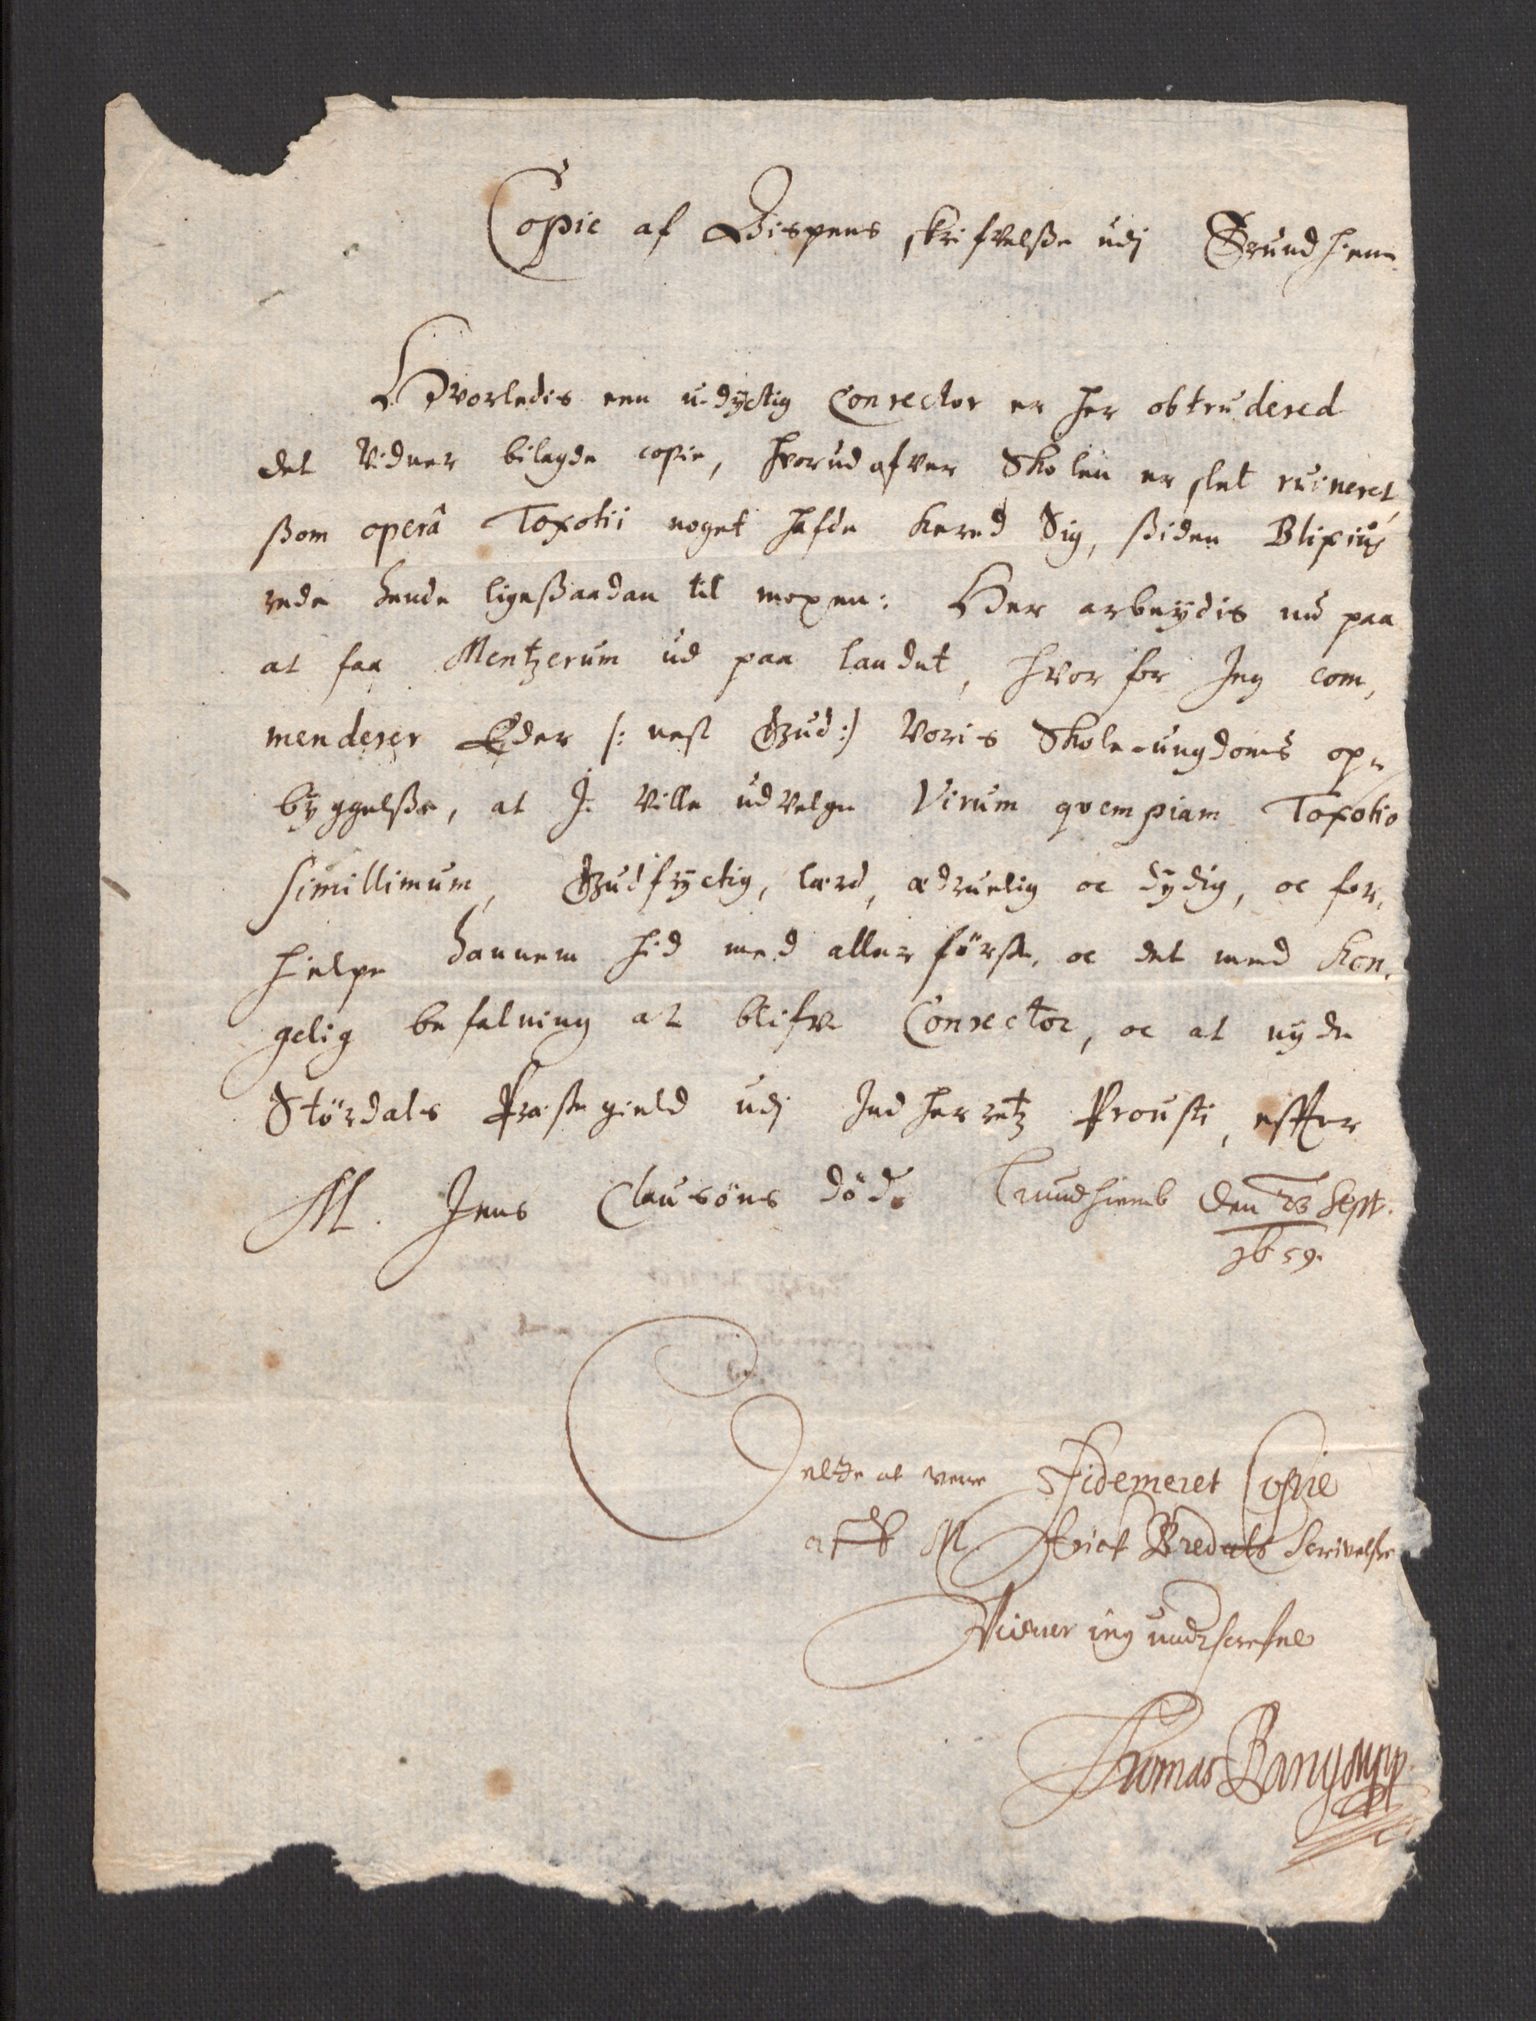 Copie af Bispens skrifvelße udj Trundhiem
Hvorledis een udyctig Conrector er her obtrudered
det Vidner bilagde copie, hvorudofver Skolen er slet ruineret,
ßom operâ Toxotii noget hafde kered Sig, ßiden Blixius
rede hende ligeßaadan til moxen: Her arbeydis nu paa
at faa Mentzerum ud paa landet, hvorfor Jeg com,
menderer Eder /: nest Gud:/ Voris Skole-ungdoms op,
byggelße, at J. Ville udvelge Virum qvempiam Toxotio
simillimum, Gudfryctig, lærd, ædruelig oc dydig, oc for,
hielpe hannem hid med allerförste, oc det med Kon,
gelig befalning at blifve Conrector, oc at nyde
Stördals Præstegield udj Indherretz Prousti, effter
M. Jens Clausöns död. Trundhiemb den 23 Sept.
1659.
at vere Fidemeret Copie
aff M. Erich Bredals Scrivelße
Vidner ieg underscrefne
Thomas